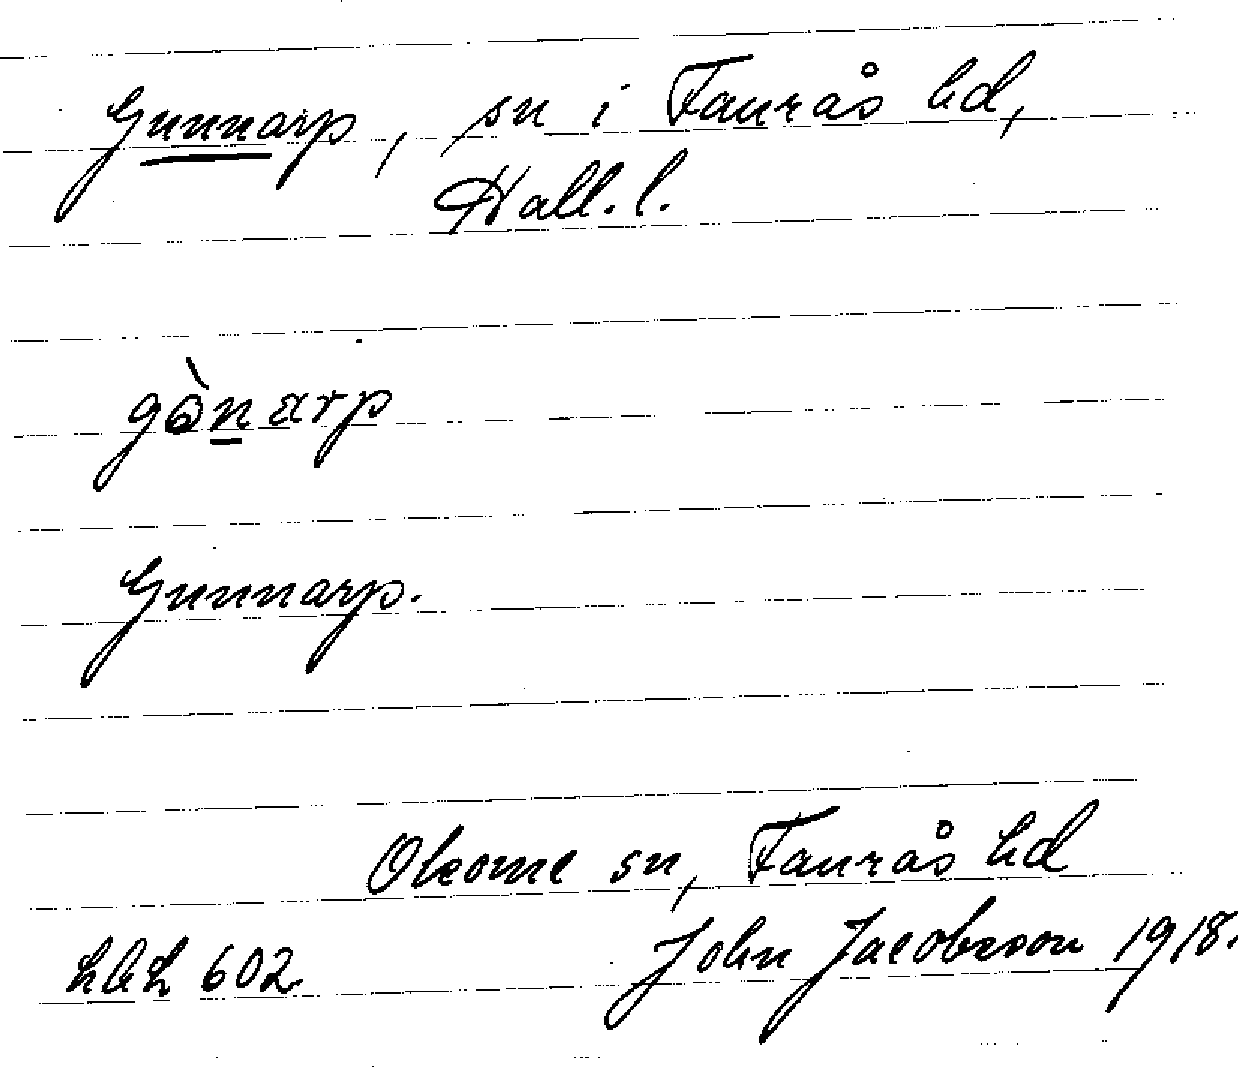 Gunnarp, sn i Faurås hd,
Hall. l.
gònarp
Gunnarp.
Okome sn, Faurås hd
John Jacobsson 1918.
602.